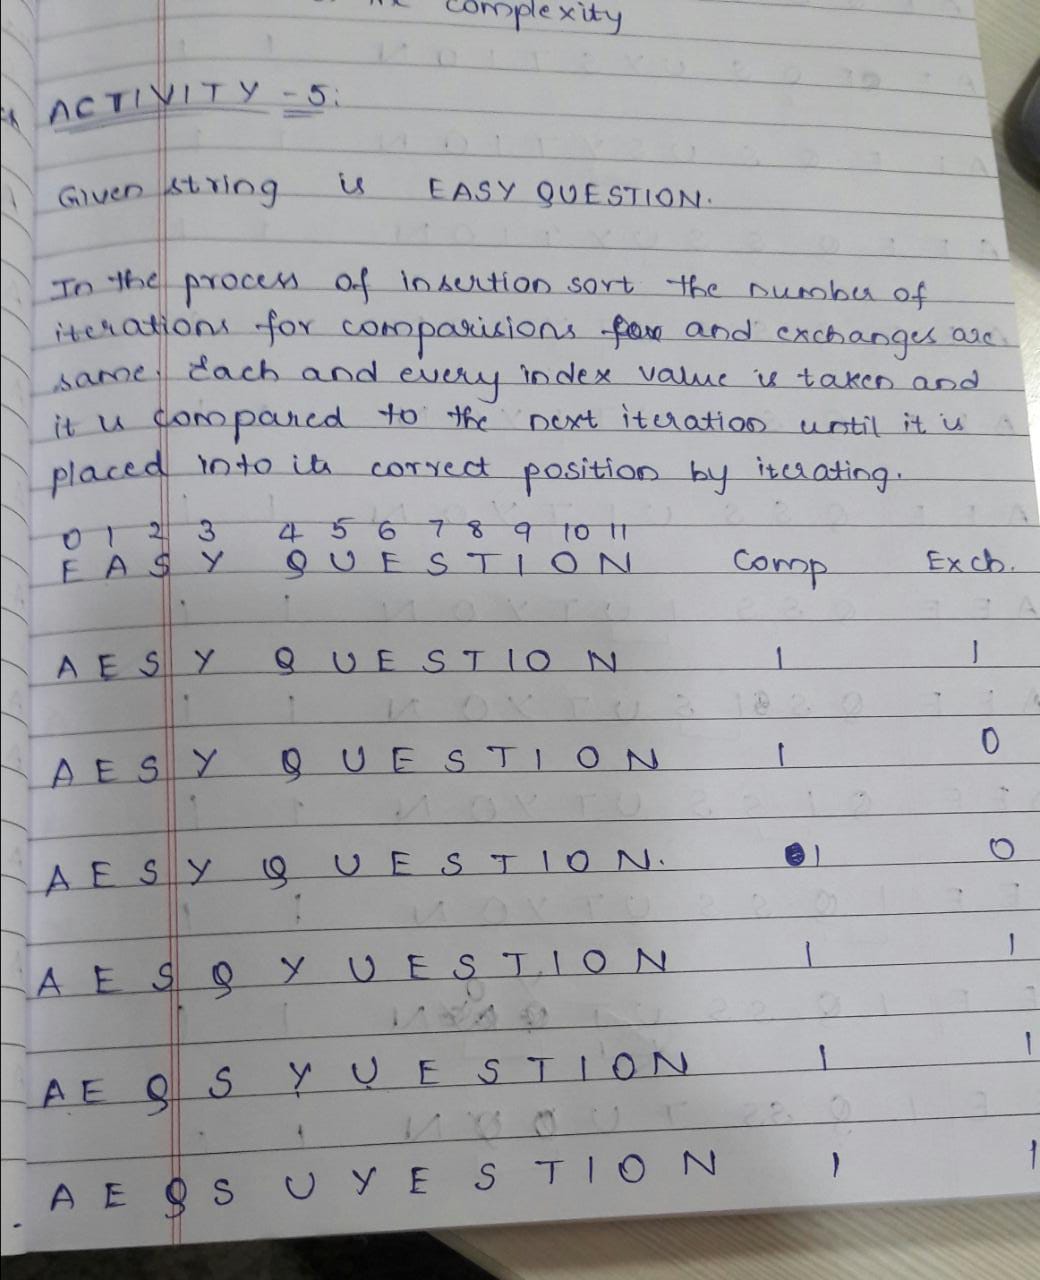 complexity
ACTIVITY - 5:
Given string is EASY QUESTION.
In the process of insertion sort the number of
iterations for comparisions and exchanges are
same. Each and every index value is taken and
it is compared to the next iteration until it is
placed into its correct position by iterating.
0 1 2 3 4 5 6 7 8 9 10 11
E A S Y Q U E S T I O N Comp Exch.
A E S Y Q U E S T I O N 1 1
A E S Y Q U E S T I O N 1 0
A E S Y Q U E S T I O N. 1 0
A E S Q Y U E S T I O N 1 1
A E Q S Y U E S T I O N 1 1
A E Q S U Y E S T I O N 1 1